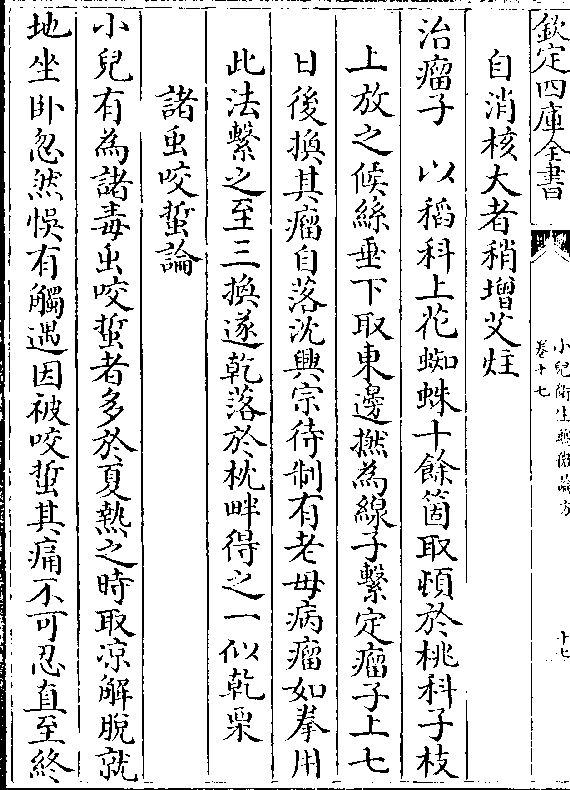 欽定四庫全書
小兒衛生總微論方
卷十七
十七
自消核大者稍增艾炷
治瘤子　以稻科上花蜘蛛十餘箇取頓於桃科子枝
上放之候絲垂下取東邊撚為線子繫定瘤子上七
日後換其瘤自落沈興宗待制有老母病瘤如拳用
此法繫之至三換遂乾落於枕畔得之一似乾栗
諸虫咬螫論
小兒有為諸毒虫咬螫者多於夏熱之時取凉解脫就
地坐卧忽然悞有觸遇因被咬螫其痛不可忍直至終